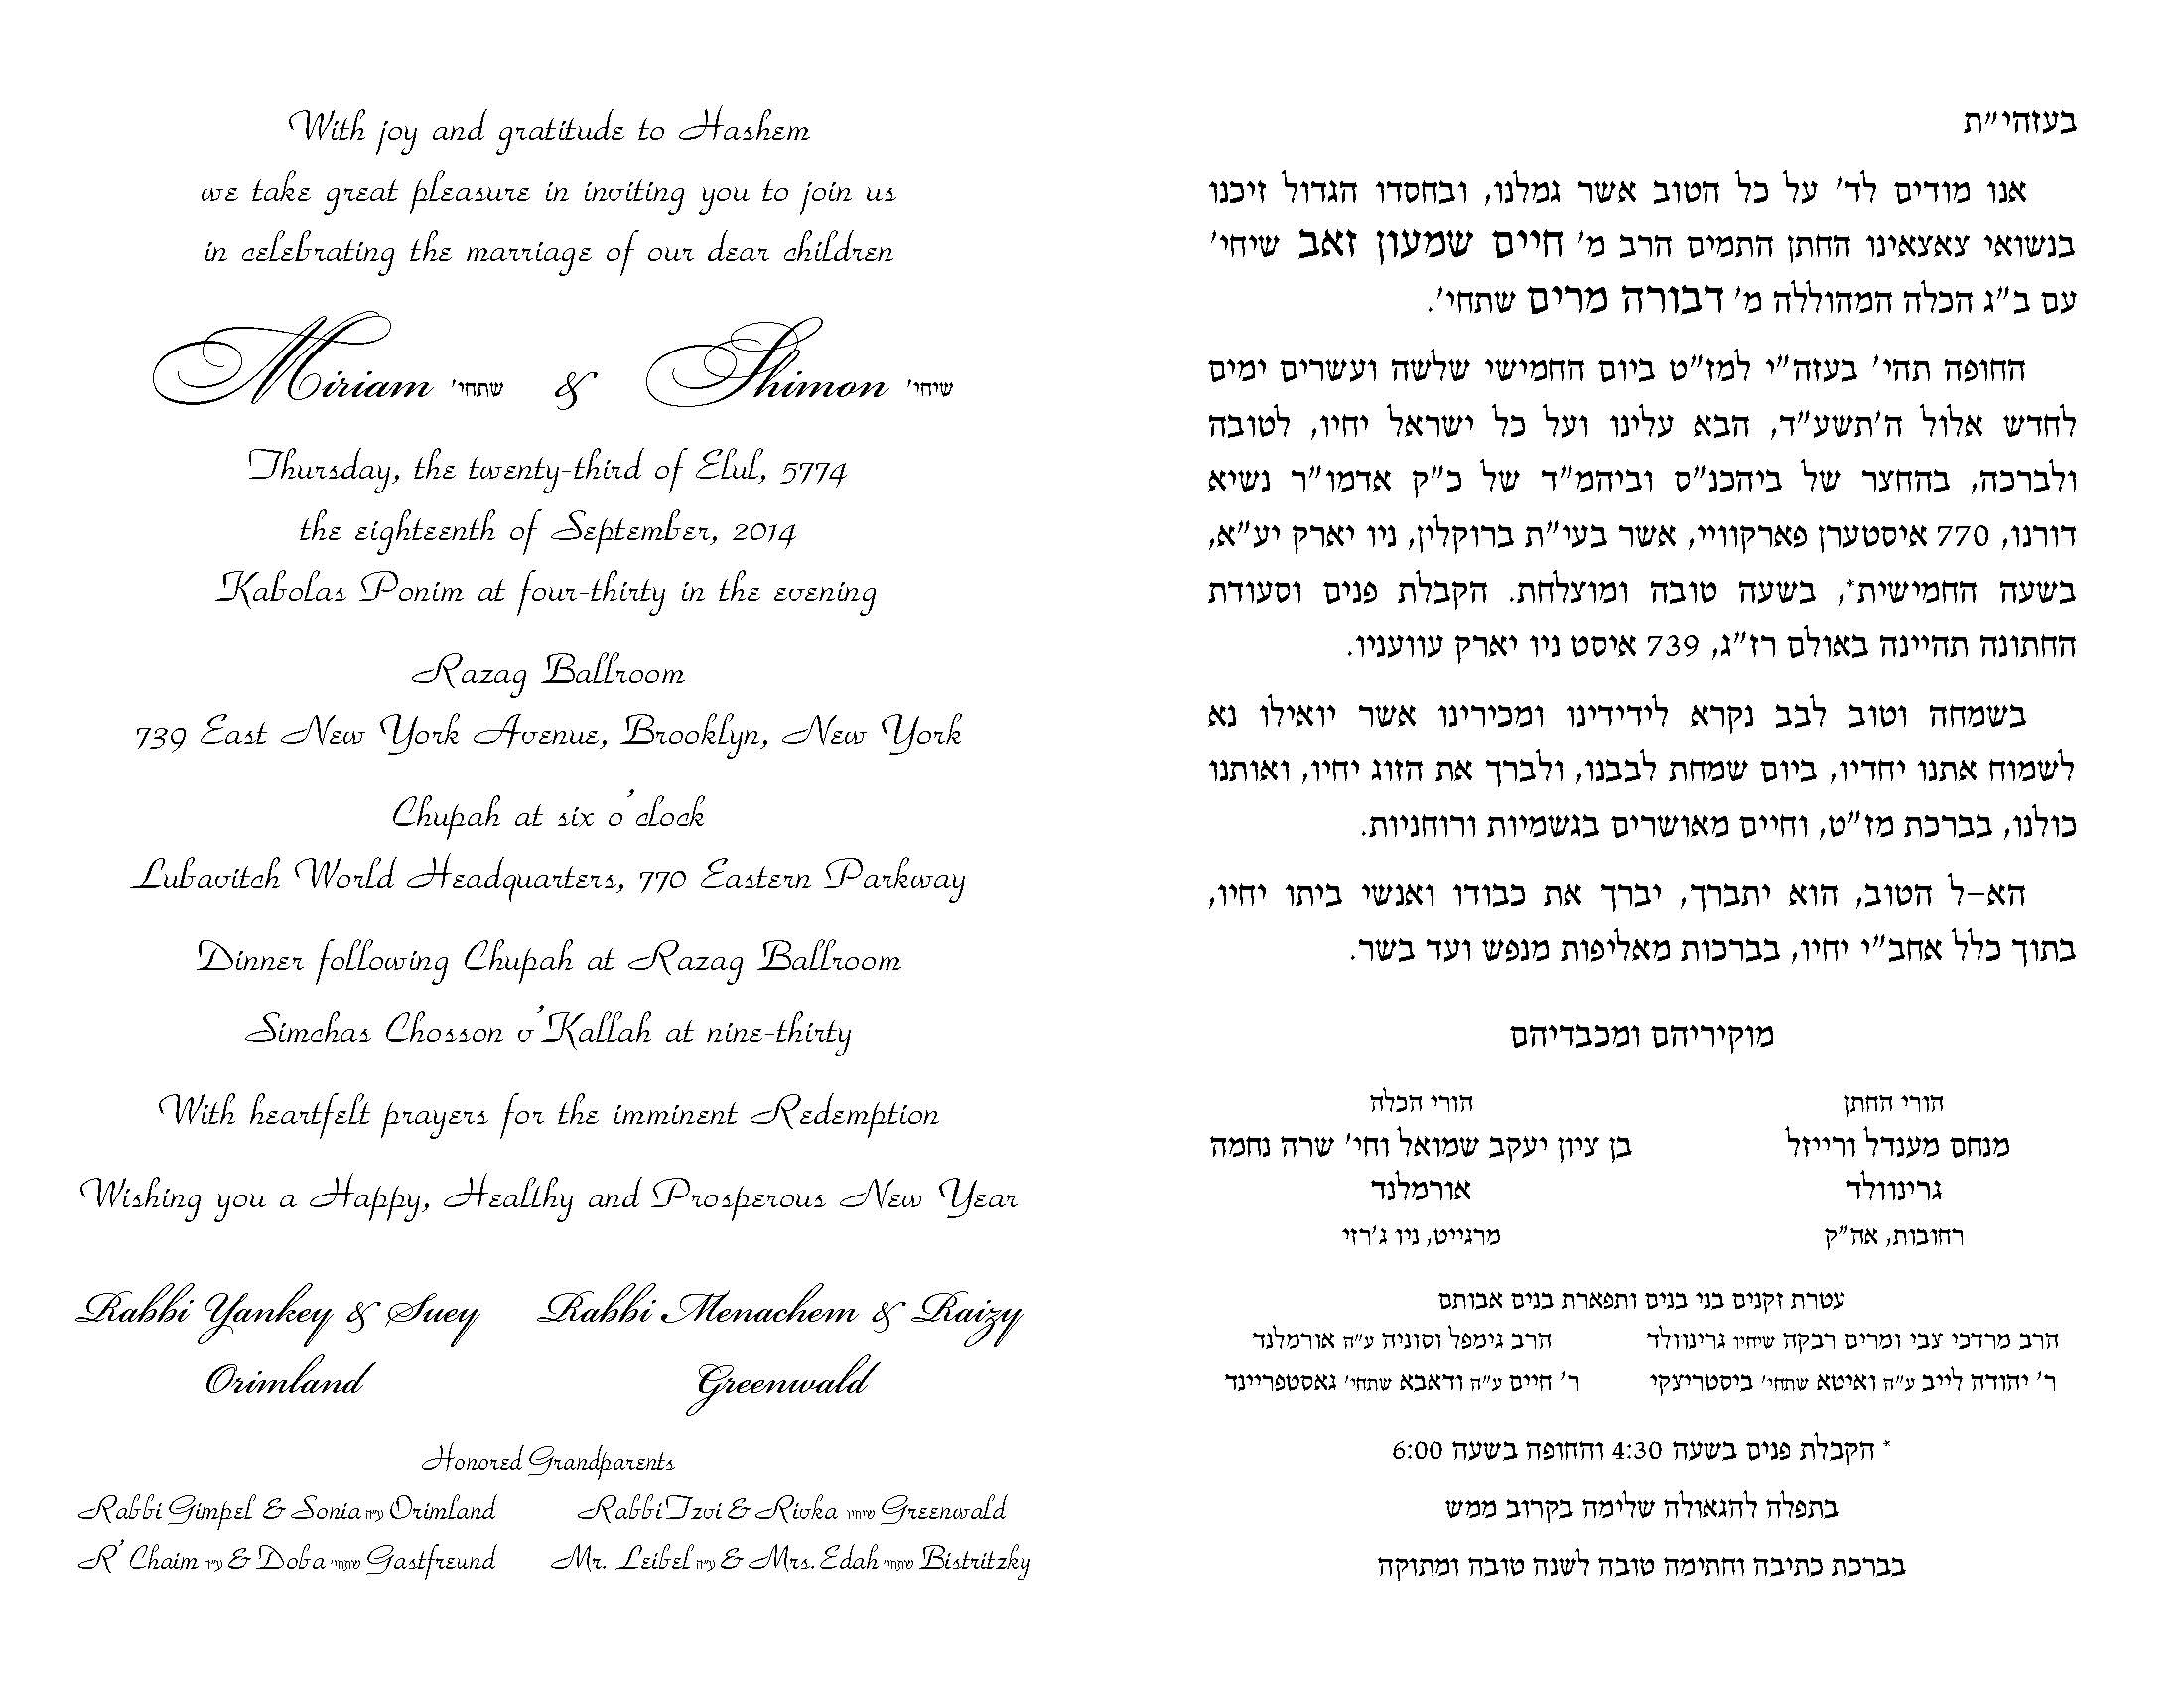 With joy and gratitude to Hashem
we take great pleasure in inviting you to join us
in celebrating the marriage of our dear children
Miriam שתחי' & Shimon שיחי'
Thursday, the twenty-third of Elul, 5774
the eighteenth of September, 2014
Kabolas Ponim at four-thirty in the evening
Razag Ballroom
739 East New York Avenue, Brooklyn, New York
Chupah at six o'clock
Lubavitch World Headquarters, 770 Eastern Parkway
Dinner following Chupah at Razag Ballroom
Simchas Chosson v'Kallah at nine-thirty
With heartfelt prayers for the imminent Redemption
Wishing you a Happy, Healthy and Prosperous New Year
Rabbi Yankey & Suey
Orimland
Rabbi Menachem & Raizy
Greenwald
Honored Grandparents
Rabbi Gimpel & Sonia ע"ה Orimland
R' Chaim ע"ה & Doba שתחי' Gastfreund
Rabbi Tzvi & Rivka שיחיו Greenwald
Mr. Leibel ע"ה & Mrs. Edah שתחי' Bistritzky
בעזהי"ת
אנו מודים לד' על כל הטוב אשר גמלנו, ובחסדו הגדול זיכנו
בנשואי צאצאינו החתן התמים הרב מ' חיים שמעון זאב שיחי'
עם ב"ג הכלה המהוללה מ' דבורה מרים שתחי'.
החופה תהי' בעזה"י למז"ט ביום החמישי שלשה ועשרים ימים
לחדש אלול ה'תשע"ד, הבא עלינו ועל כל ישראל יחיו, לטובה
ולברכה, בהחצר של ביהכנ"ס וביהמ"ד של כ"ק אדמו"ר נשיא
דורנו, 770 איסטערן פארקוויי, אשר בעי"ת ברוקלין, ניו יארק יע"א,
בשעה החמישית*, בשעה טובה ומוצלחת. הקבלת פנים וסעודת
החתונה תהיינה באולם רז"ג, 739 איסט ניו יארק עוועניו.
בשמחה וטוב לבב נקרא לידידינו ומכירינו אשר יואילו נא
לשמוח אתנו יחדיו, ביום שמחת לבבנו, ולברך את הזוג יחיו, ואותנו
כולנו, בברכת מז"ט, וחיים מאושרים בגשמיות ורוחניות.
הא-ל הטוב, הוא יתברך, יברך את כבודו ואנשי ביתו יחיו,
בתוך כלל אחב"י יחיו, בברכות מאליפות מנפש ועד בשר.
מוקיריהם ומכבדיהם
הורי החתן
מנחם מענדל ורייזל
גרינוולד
רחובות, אה"ק
הורי הכלה
בן ציון יעקב שמואל וחי' שרה נחמה
אורמלנד
מרגייט, ניו ג'רזי
עטרת זקנים בני בנים ותפארת בנים אבותם
הרב מרדכי צבי ומרים רבקה שיחיו גרינוולד
ר' יהודה לייב ע"ה ואיטא שתחי' ביסטריצקי
הרב גימפל וסוניה ע"ה אורמלנד
ר' חיים ע"ה ודאבא שתחי' גאסטפריינד
* הקבלת פנים בשעה 4:30 והחופה בשעה 6:00
בתפלה להגאולה שלימה בקרוב ממש
בברכת כתיבה וחתימה טובה לשנה טובה ומתוקה